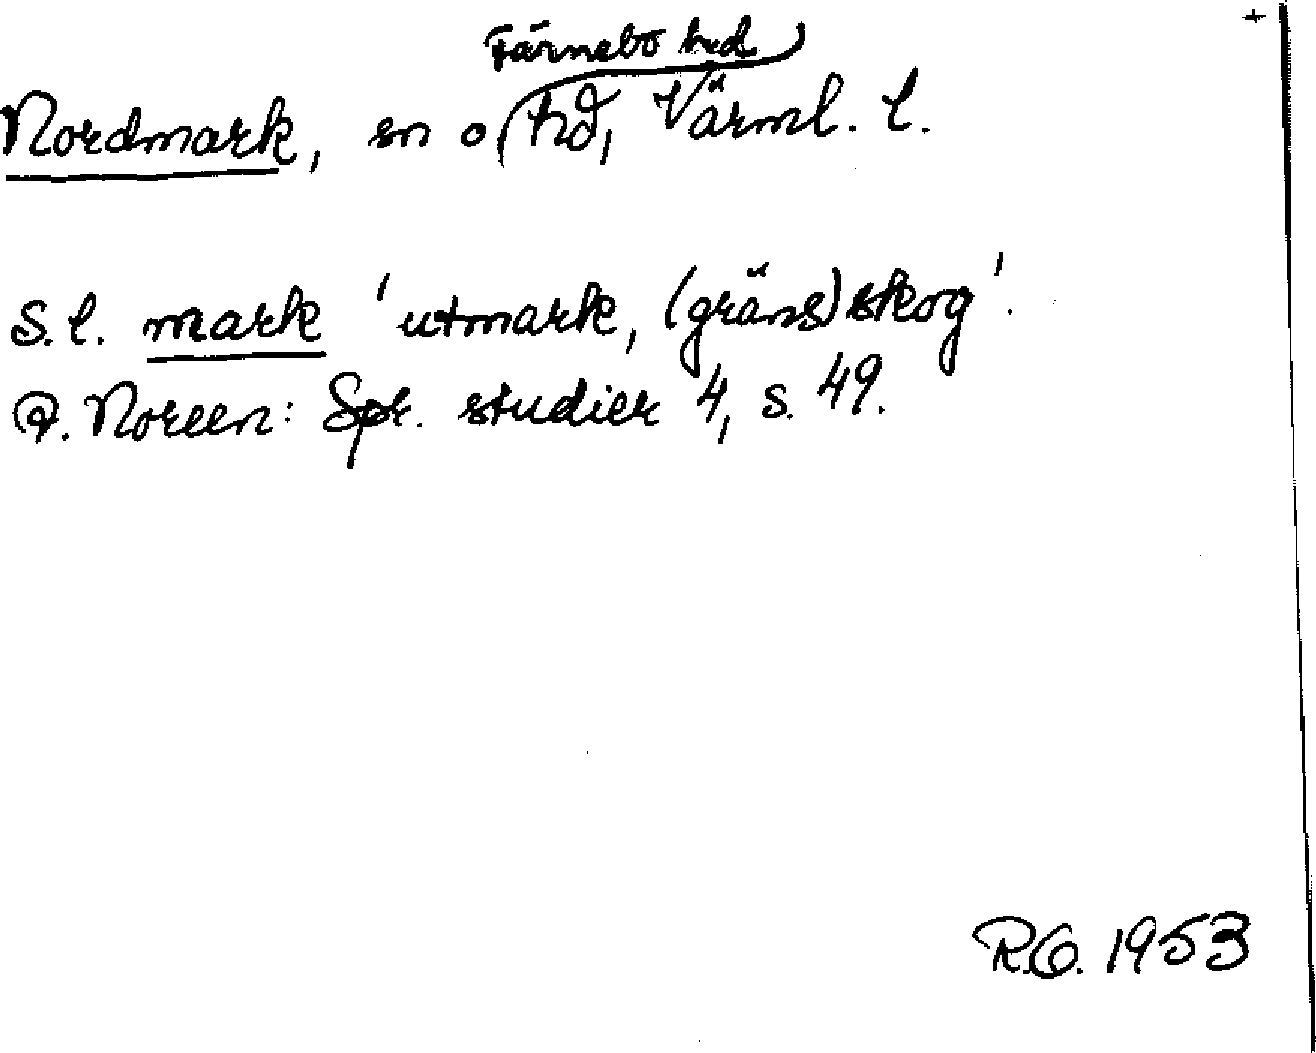 +
Färnebo hd
Nordmark, sn o hd, Värml. l.
S.l. mark 'utmark, (gräns)skog'.
A. Noreen: Spr. studier 4, s. 49.
R.O. 1953